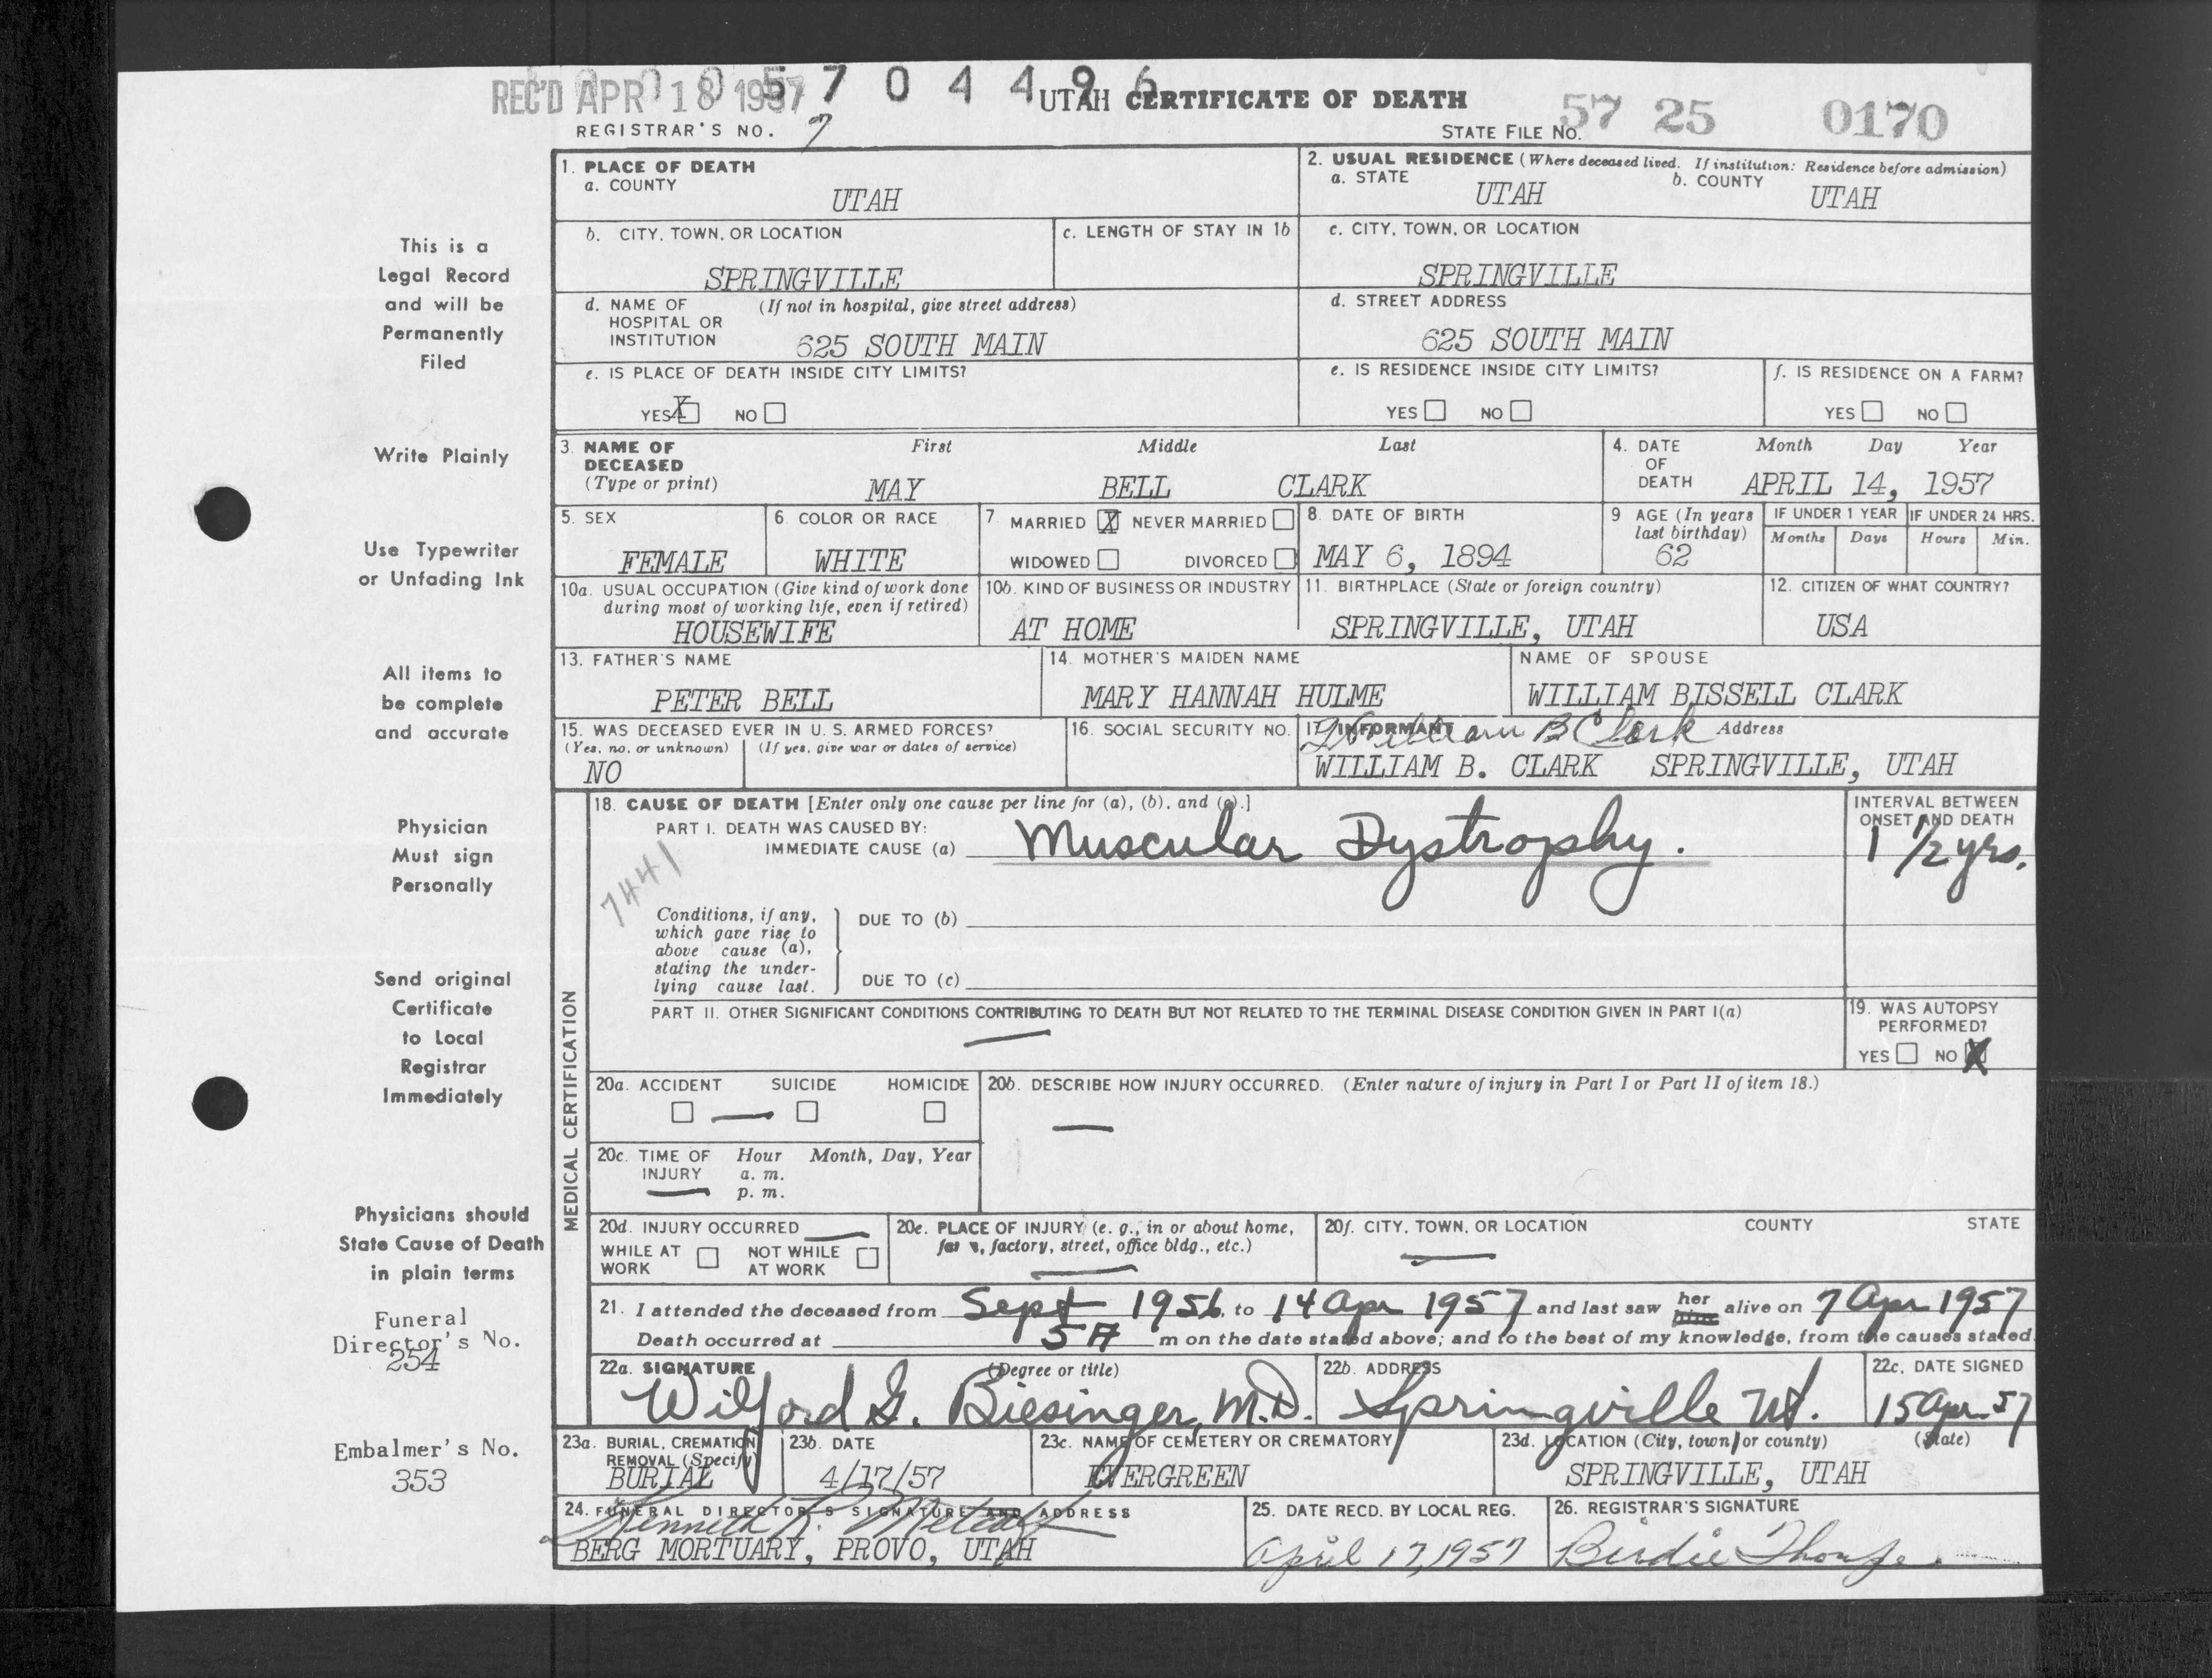 REC'D APR 18 1957 7 0 4 4 9 6
UTAH CERTIFICATE OF DEATH
57 25 0170
REGISTRAR'S NO. 7
STATE FILE NO.
1. PLACE OF DEATH
a. COUNTY
UTAH
2. USUAL RESIDENCE (Where deceased lived. If institution: Residence before admission)
a. STATE
UTAH
b. COUNTY
UTAH
b. CITY, TOWN, OR LOCATION
SPRINGVILLE
c. LENGTH OF STAY IN 1b
c. CITY, TOWN, OR LOCATION
SPRINGVILLE
d. NAME OF (If not in hospital, give street address)
HOSPITAL OR
INSTITUTION
625 SOUTH MAIN
d. STREET ADDRESS
625 SOUTH MAIN
e. IS PLACE OF DEATH INSIDE CITY LIMITS?
YES X NO
e. IS RESIDENCE INSIDE CITY LIMITS?
YES NO
f. IS RESIDENCE ON A FARM?
YES NO
3. NAME OF
DECEASED
(Type or print)
First Middle Last
MAY BELL CLARK
4. DATE
OF
DEATH
Month Day Year
APRIL 14, 1957
5. SEX
FEMALE
6. COLOR OR RACE
WHITE
7 MARRIED X NEVER MARRIED
WIDOWED DIVORCED
8. DATE OF BIRTH
MAY 6, 1894
9 AGE (In years
last birthday)
62
IF UNDER 1 YEAR
Months Days
IF UNDER 24 HRS.
Hours Min.
10a. USUAL OCCUPATION (Give kind of work done
during most of working life, even if retired)
HOUSEWIFE
10b. KIND OF BUSINESS OR INDUSTRY
AT HOME
11. BIRTHPLACE (State or foreign country)
SPRINGVILLE, UTAH
12. CITIZEN OF WHAT COUNTRY?
USA
13. FATHER'S NAME
PETER BELL
14. MOTHER'S MAIDEN NAME
MARY HANNAH HULME
NAME OF SPOUSE
WILLIAM BISSELL CLARK
15. WAS DECEASED EVER IN U. S. ARMED FORCES?
(Yes, no, or unknown) (If yes, give war or dates of service)
NO
16. SOCIAL SECURITY NO.
17. INFORMANT Address
William B Clark
WILLIAM B. CLARK SPRINGVILLE, UTAH
MEDICAL CERTIFICATION
18. CAUSE OF DEATH [Enter only one cause per line for (a), (b), and (c).]
PART I. DEATH WAS CAUSED BY:
IMMEDIATE CAUSE (a) Muscular Dystrophy.
7441
INTERVAL BETWEEN
ONSET AND DEATH
1 1/2 yrs.
Conditions, if any,
which gave rise to
above cause (a),
stating the under-
lying cause last.
DUE TO (b)
DUE TO (c)
PART II. OTHER SIGNIFICANT CONDITIONS CONTRIBUTING TO DEATH BUT NOT RELATED TO THE TERMINAL DISEASE CONDITION GIVEN IN PART I(a)
—
19. WAS AUTOPSY
PERFORMED?
YES NO X
20a. ACCIDENT SUICIDE HOMICIDE
—
20b. DESCRIBE HOW INJURY OCCURRED. (Enter nature of injury in Part I or Part II of item 18.)
—
20c. TIME OF Hour Month, Day, Year
INJURY a. m.
— p. m.
20d. INJURY OCCURRED —
WHILE AT NOT WHILE
WORK AT WORK
20e. PLACE OF INJURY (e. g., in or about home,
farm, factory, street, office bldg., etc.)
—
20f. CITY, TOWN, OR LOCATION COUNTY STATE
—
21. I attended the deceased from Sept 1956, to 14 Apr 1957 and last saw her him alive on 7 Apr 1957
Death occurred at 5 A m on the date stated above; and to the best of my knowledge, from the causes stated.
22a. SIGNATURE (Degree or title)
Wilford G. Biesinger, M.D.
22b. ADDRESS
Springville Ut.
22c. DATE SIGNED
15 Apr 57
23a. BURIAL, CREMATION
REMOVAL (Specify)
BURIAL
23b. DATE
4/17/57
23c. NAME OF CEMETERY OR CREMATORY
EVERGREEN
23d. LOCATION (City, town, or county) (State)
SPRINGVILLE, UTAH
24. FUNERAL DIRECTOR'S SIGNATURE AND ADDRESS
Kenneth R. Metcalf
BERG MORTUARY, PROVO, UTAH
25. DATE RECD. BY LOCAL REG.
April 17, 1957
26. REGISTRAR'S SIGNATURE
Birdie Thorpe.
This is a
Legal Record
and will be
Permanently
Filed
Write Plainly
Use Typewriter
or Unfading Ink
All items to
be complete
and accurate
Physician
Must sign
Personally
Send original
Certificate
to Local
Registrar
Immediately
Physicians should
State Cause of Death
in plain terms
Funeral
Director's No.
254
Embalmer's No.
353